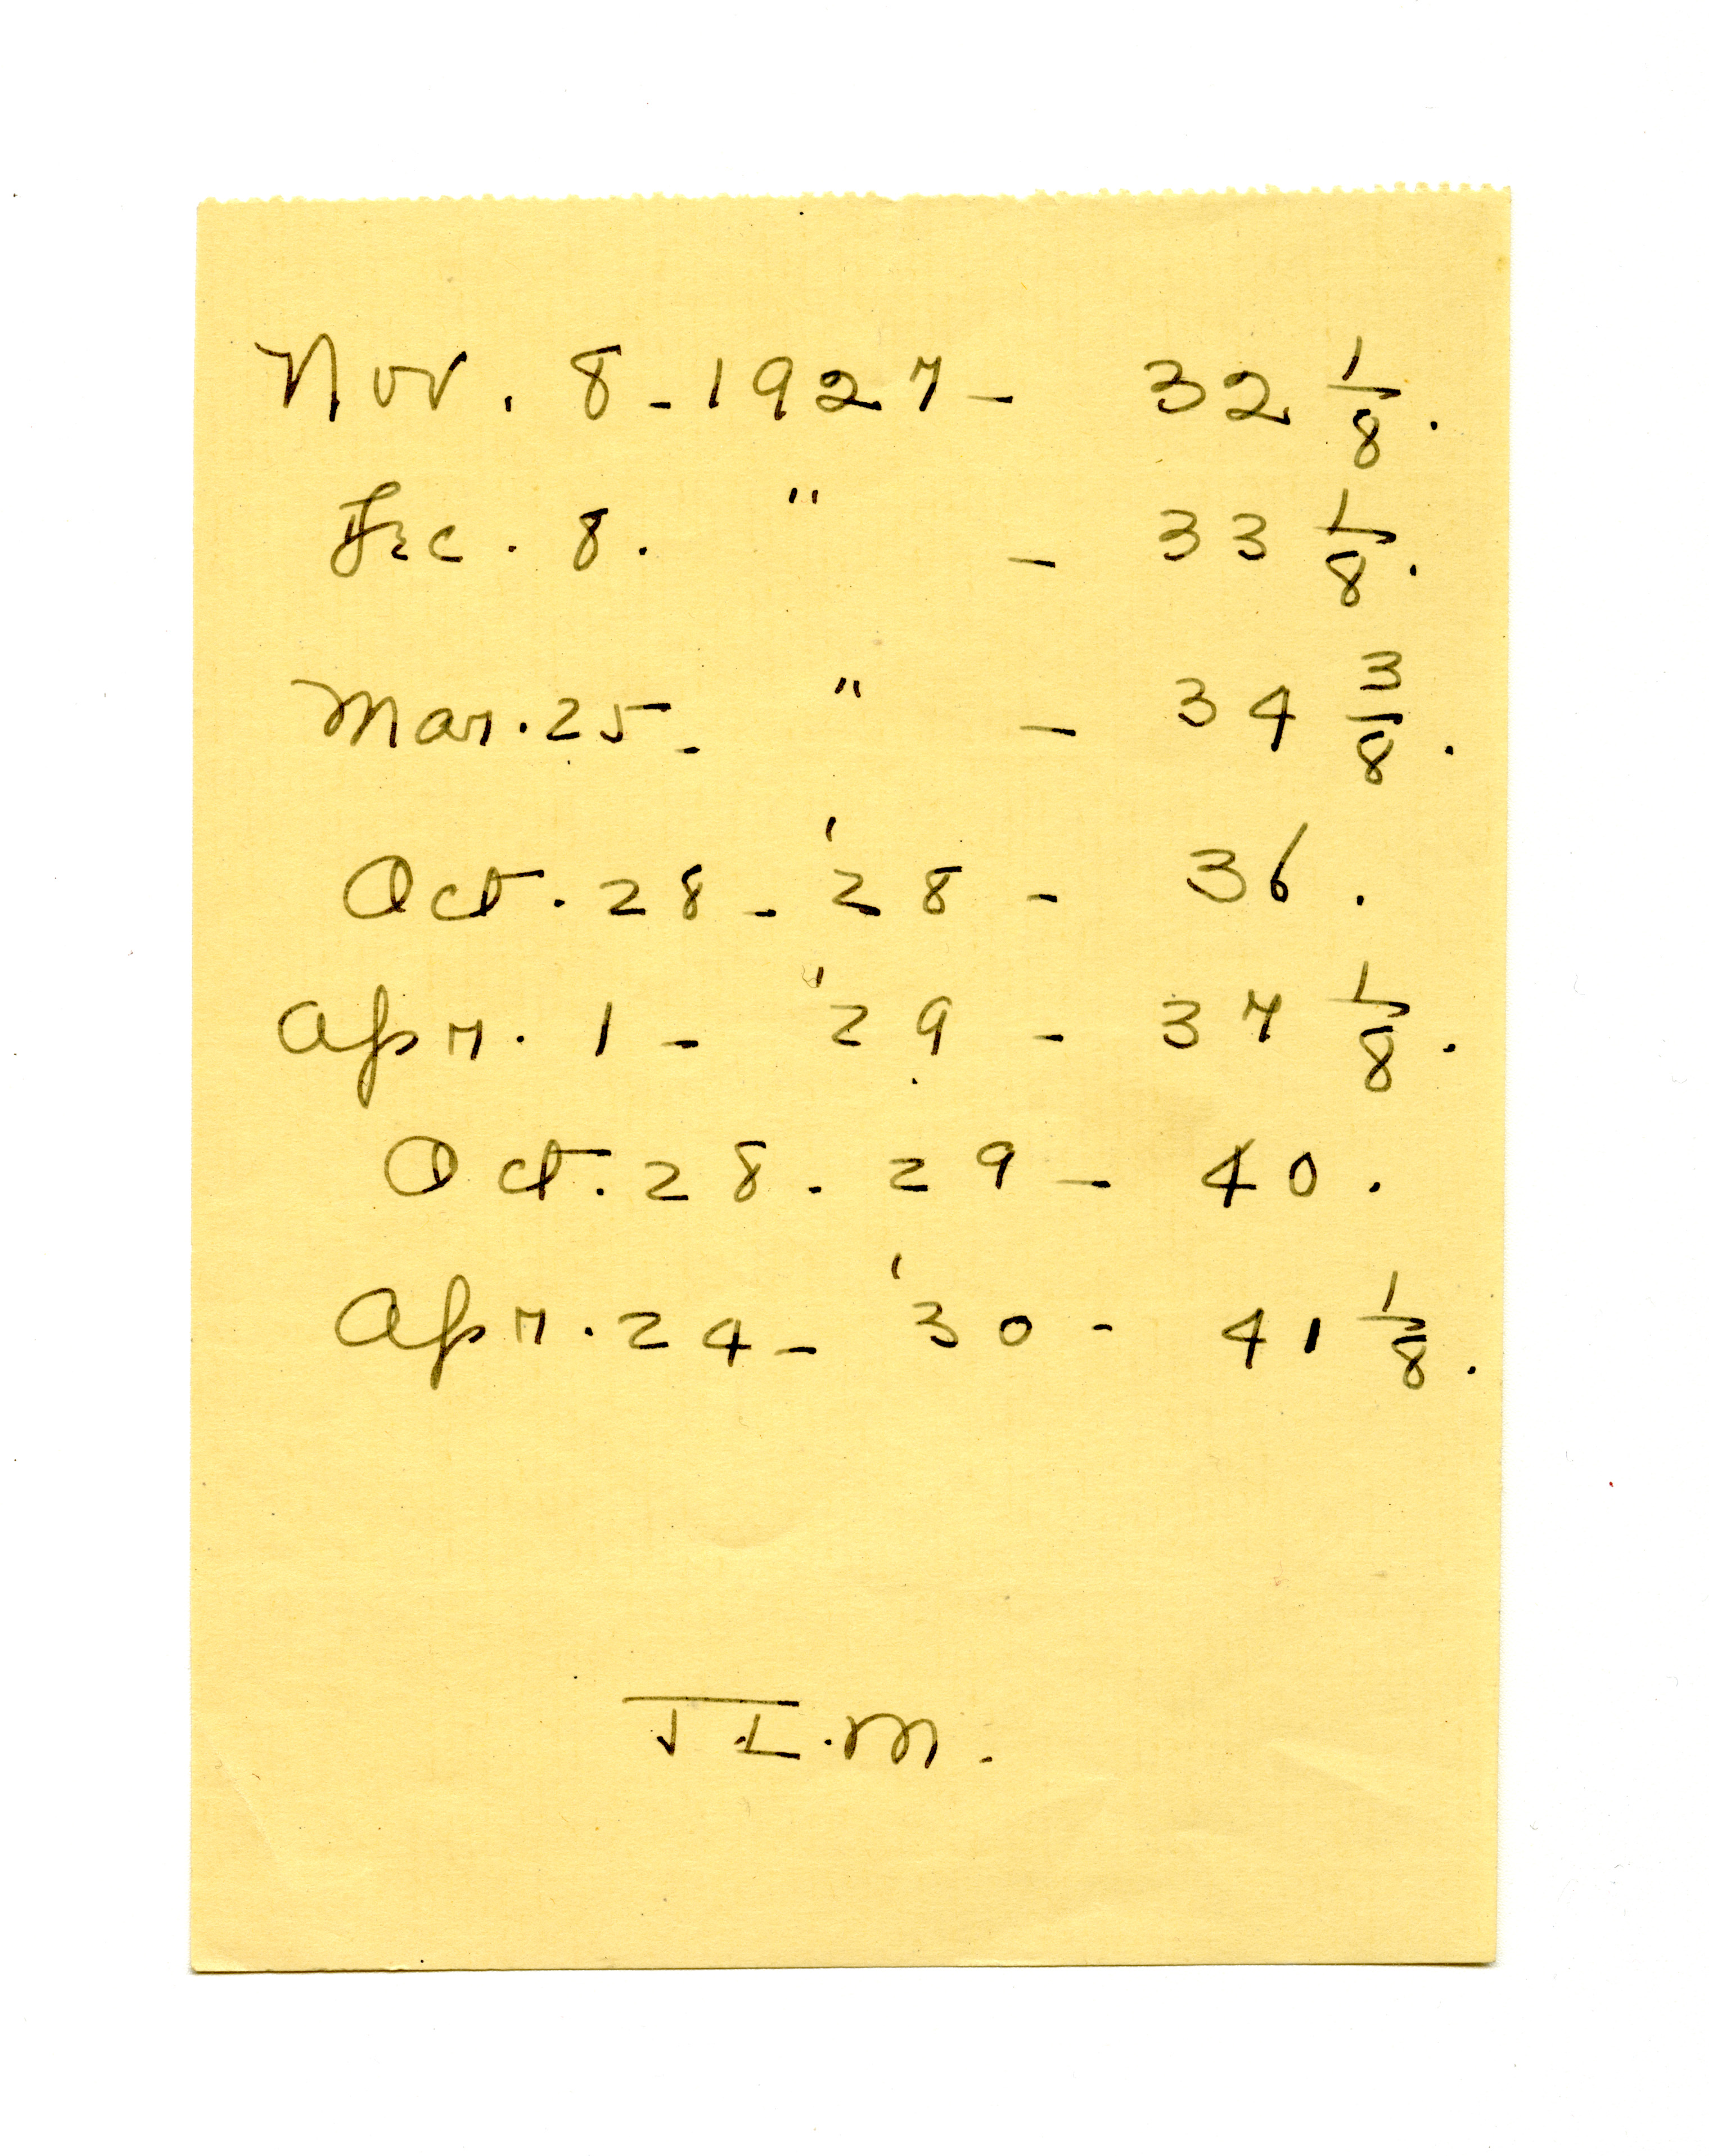 Nov. 8-1927- 32 1/8.
Dec. 8. " - 33 1/8.
Mar. 25- " - 34 3/8.
Oct. 28- '28 - 36.
Apr. 1- '29 - 37 1/8.
Oct. 28. 29 - 40.
Apr. 24- '30 - 41 1/8.
J.L.M.